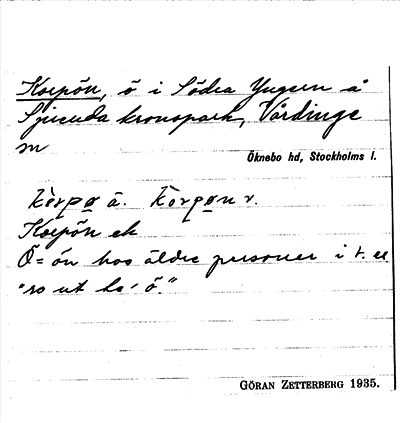 Korpön, ö i Södra Yngern å
Sjunda kronopark, Vårdinge
sn
Öknebo hd, Stockholms l.
kòrpo̲ ä. kòrpo̲n v.
Korpön ek
Ö = ön hos äldre personer i t. ex
"ro ut te' ö."
GÖRAN ZETTERBERG 1935.